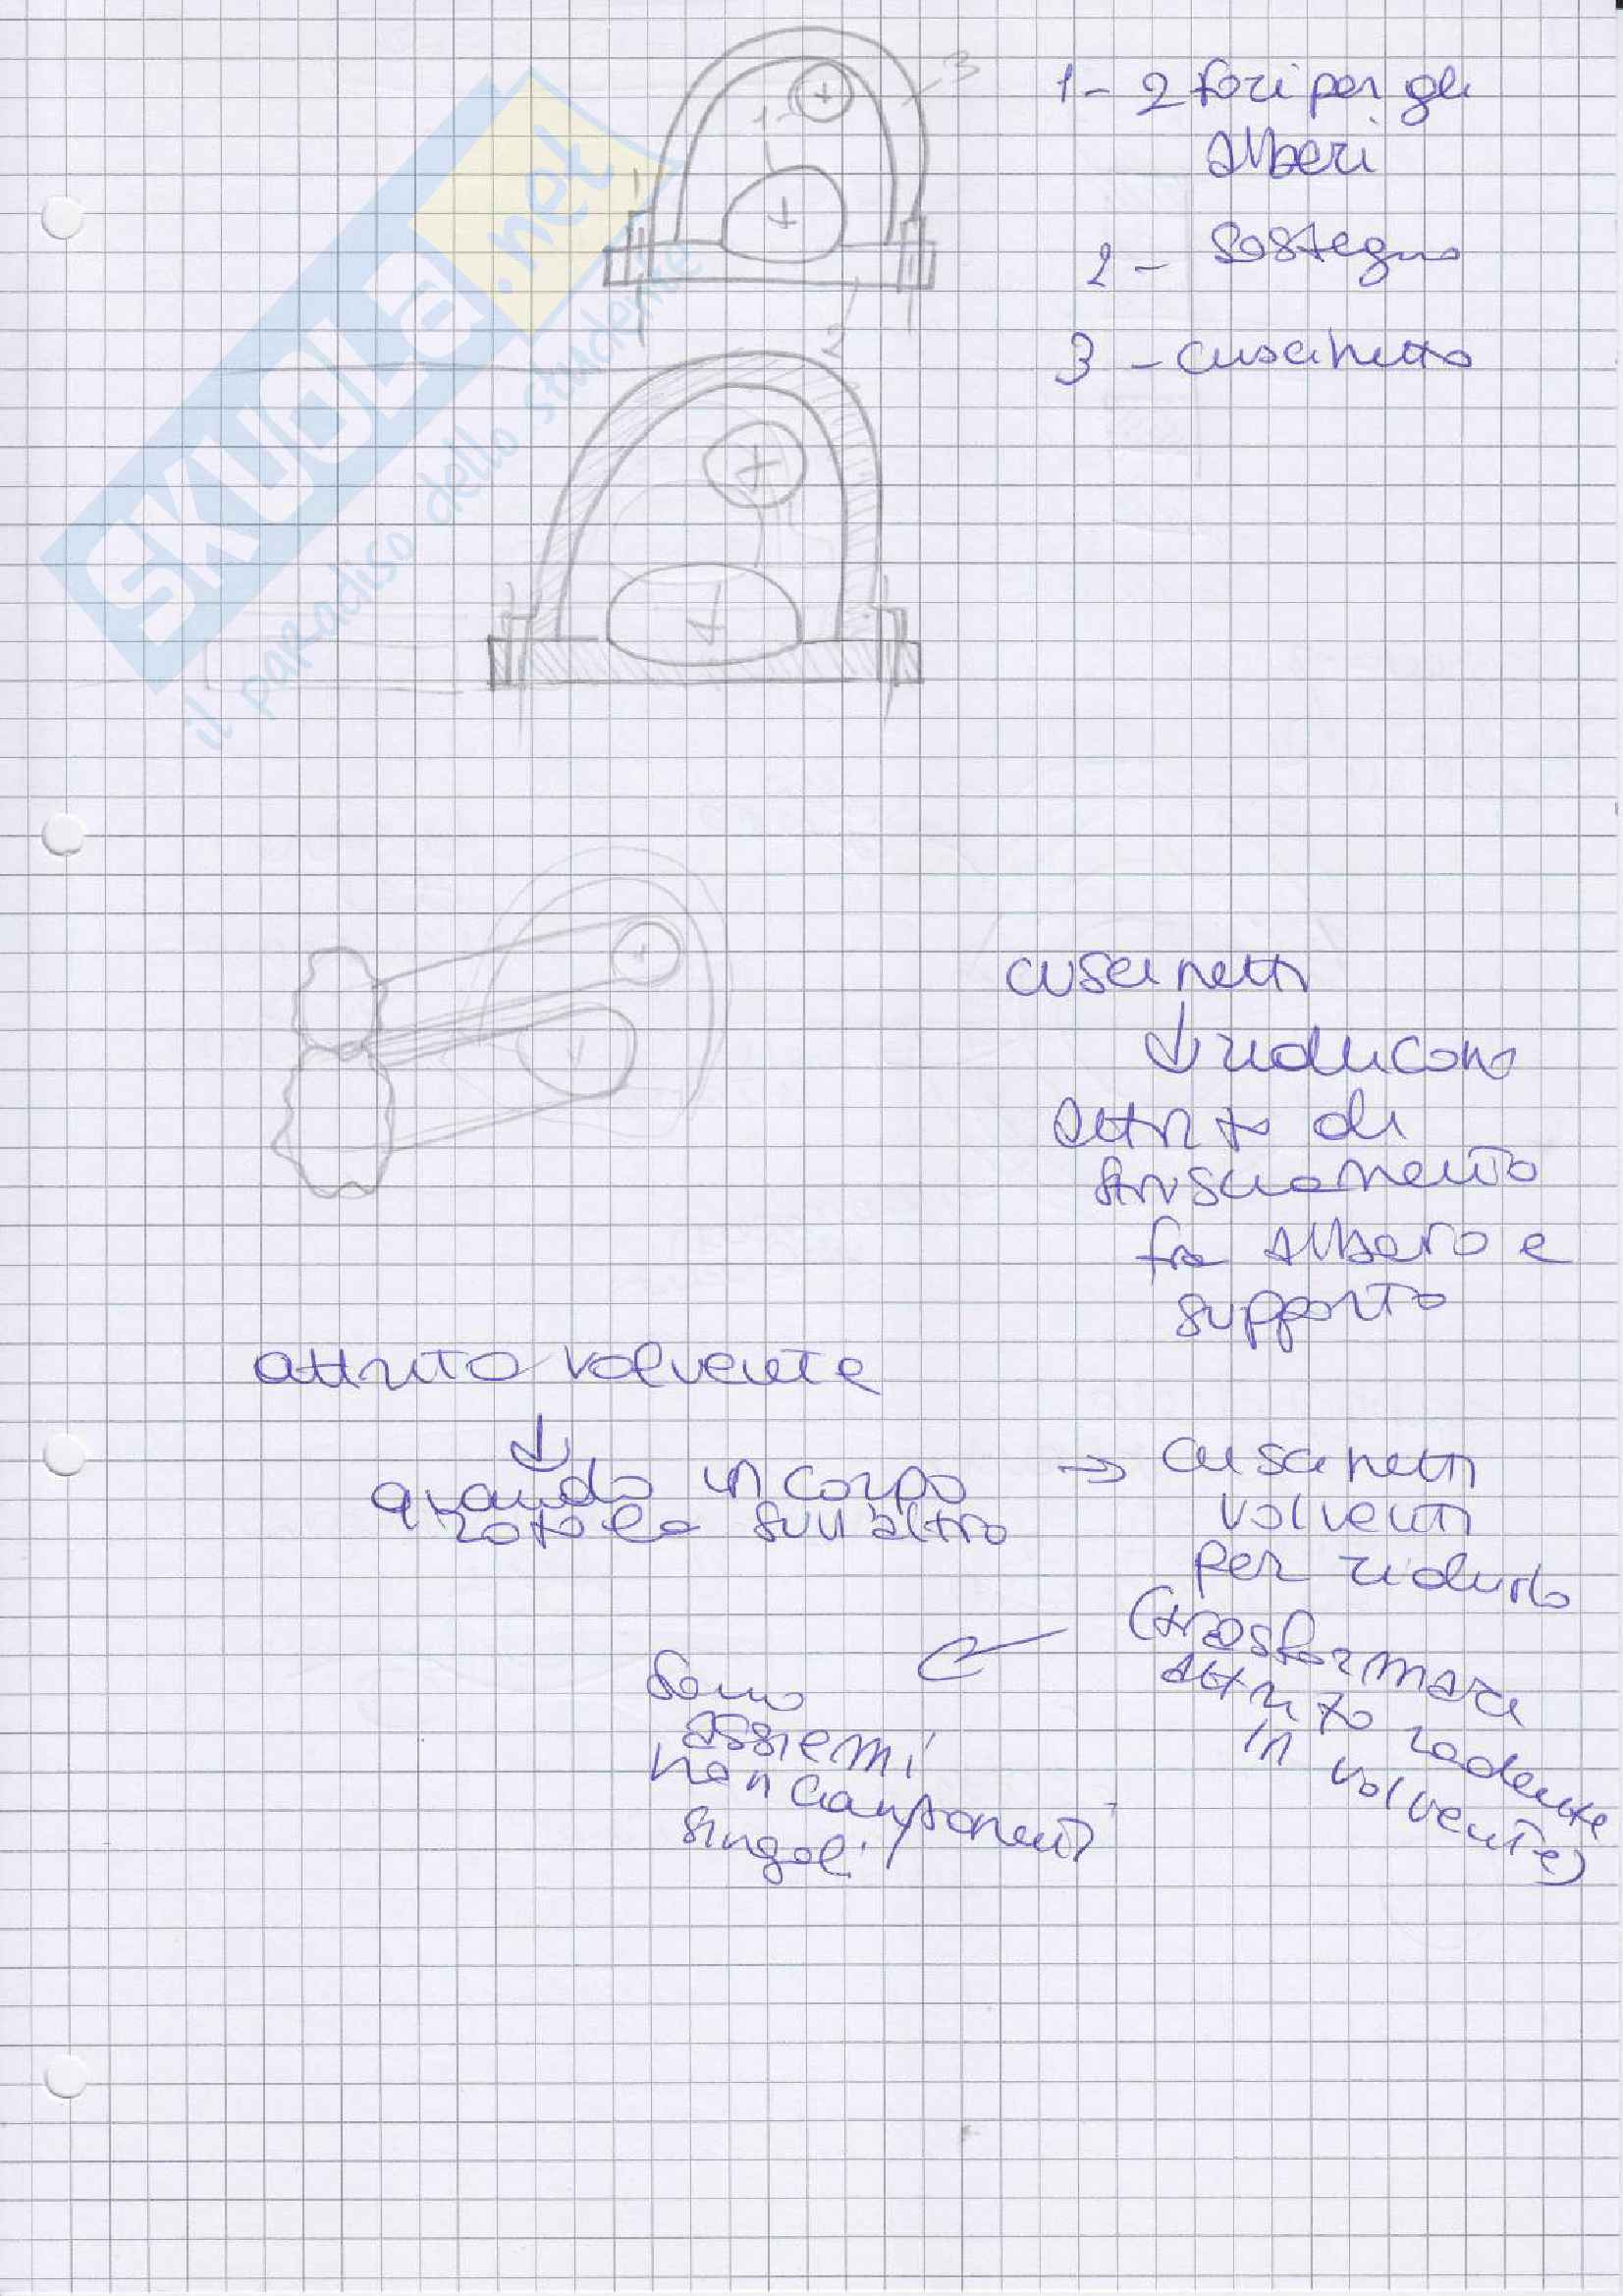 3
1
2
1- 2 fori per gli
alberi
2 - Sostegno
3 - cuscinetto
SKUOLA.net
il paradiso dello studente
cuscinetti
↓ riducono
attrito di
strisciamento
fra albero e
supporto
attrito volvente
↓
quando un corpo
rotola sull'altro
→ cuscinetti
volventi
per ridurlo
(trasformare
attrito radente
in volvente)
Sono
assiemi
non componenti
singoli